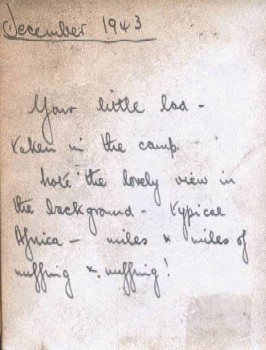 December 1943
Your little lad -
taken in the camp
Note the lovely view in
the background - typical
Africa - miles & miles of
nuffing & nuffing!